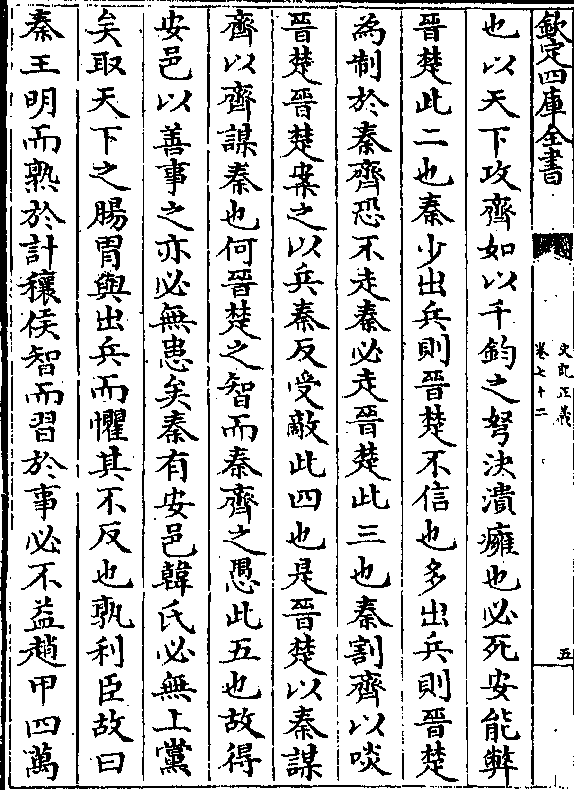 欽定四庫全書
史記正義
卷七十二
五
也以天下攻齊如以千鈞之弩決潰癰也必死安能弊
晉楚此二也秦少出兵則晉楚不信也多出兵則晉楚
為制於秦齊恐不走秦必走晉楚此三也秦割齊以啖
晉楚晉楚案之以兵秦反受敵此四也是晉楚以秦謀
齊以齊謀秦也何晉楚之智而秦齊之愚此五也故得
安邑以善事之亦必無患矣秦有安邑韓氏必無上黨
矣取天下之腸胃與出兵而懼其不反也孰利臣故曰
秦王明而熟於計穰侯智而習於事必不益趙甲四萬